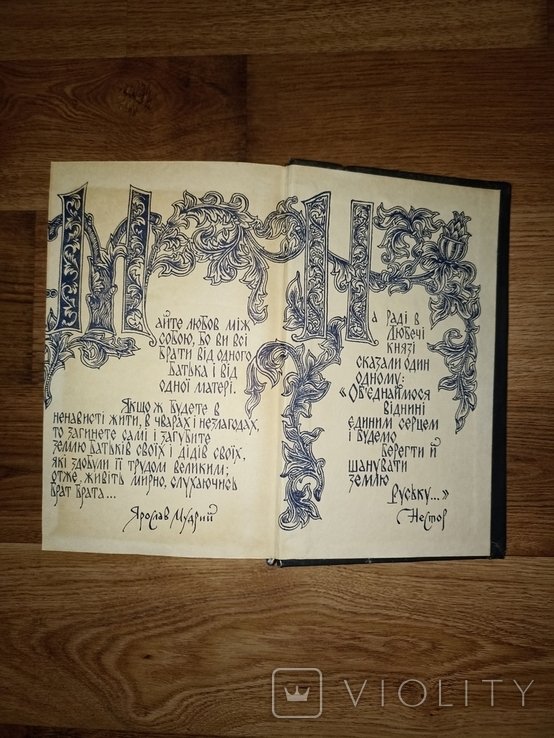 М
айте любов між
собою, бо ви всі
брати від одного
батька і від
одної матері.
Якщо ж будете в
ненависті жити, в чварах і незлагодах,
то загинете самі і загубите
землю батьків своїх і дідів своїх,
які здобули її трудом великим;
отже, живіть мирно, слухаючись
брат брата...
Ярослав Мудрий
Н
а раді в
Любечі
князі
сказали один
одному:
«Об'єднаймося
віднині
єдиним серцем
і будемо
берегти й
шанувати
землю
Руську...»
Нестор
VIOLITY